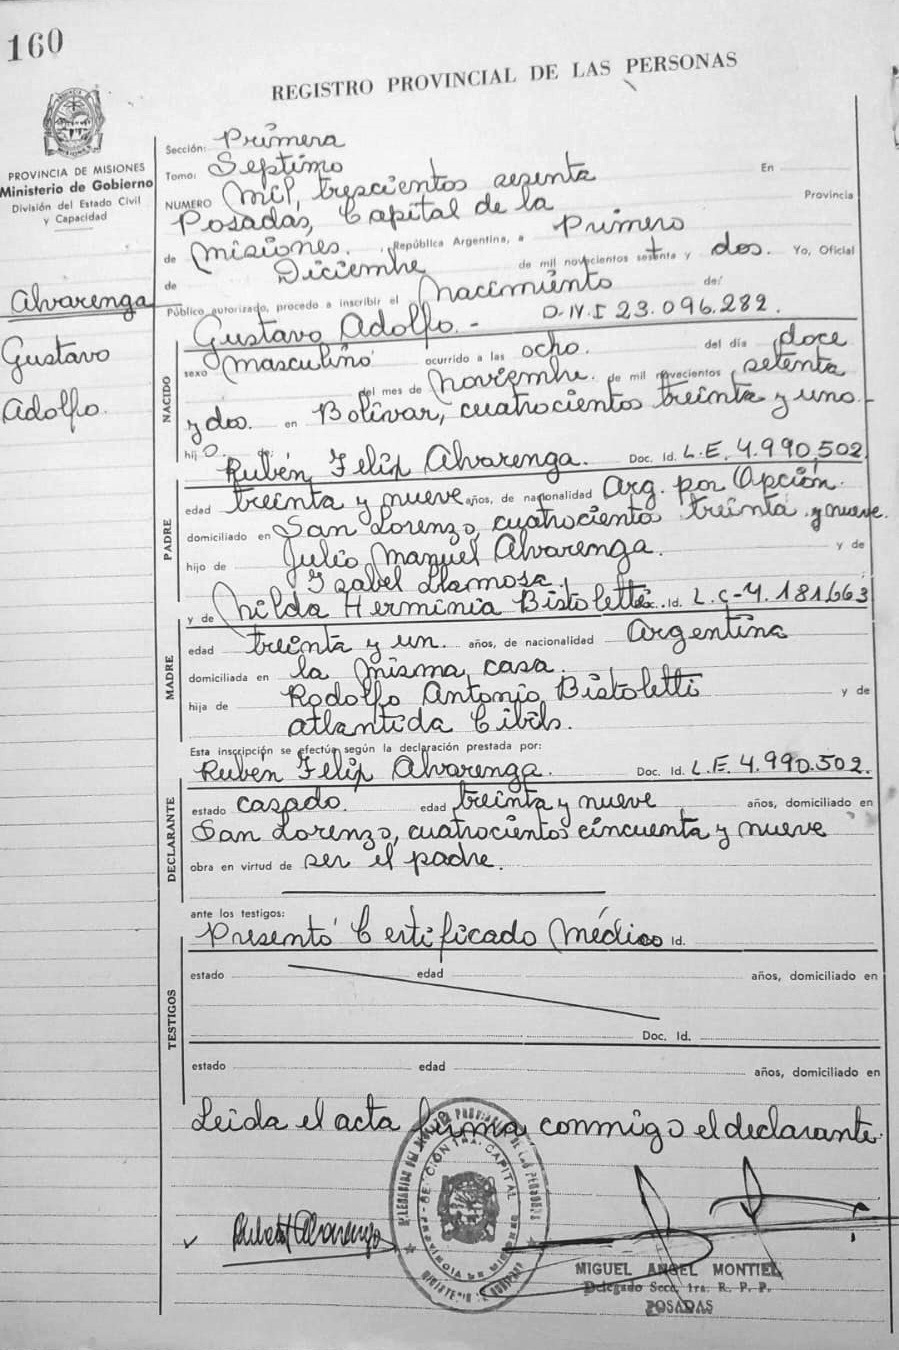 160
REGISTRO PROVINCIAL DE LAS PERSONAS
PROVINCIA DE MISIONES
Ministerio de Gobierno
División del Estado Civil
y Capacidad
Alvarenga
Gustavo
Adolfo.
Sección: Primera
Tomo: Septimo En
NUMERO Mil, trescientos sesenta
Posadas, Capital de la Provincia
de Misiones. República Argentina, a Primero
de Diciembre de mil novecientos setenta y dos. Yo, Oficial
Público autorizado, procedo a inscribir el Nacimiento de:
Gustavo Adolfo.- D.N.I 23.096.282.
NACIDO
sexo Masculino ocurrido a las ocho. del día doce
del mes de Noviembre. de mil novecientos setenta
y dos. en Bolívar, cuatrocientos treinta y uno.-
hijo.
Rubén Felix Alvarenga. Doc. Id. L.E. 4.990.502
PADRE
edad treinta y nueve años, de nacionalidad Arg. por Opción.
domiciliado en San Lorenzo, cuatrociento treinta y nueve.
hijo de Julio Manuel Alvarenga. y de
Izabel Llamosa.
y de Nilda Herminia Bistoletti. Id. L.C-4.181.663
MADRE
edad treinta y un. años, de nacionalidad Argentina
domiciliada en la misma casa.
hija de Rodolfo Antonio Bistoletti y de
Atlantida Cibils.
Esta inscripción se efectúa según la declaración prestada por:
Rubén Felix Alvarenga. Doc. Id. L.E. 4.990.502.
DECLARANTE
estado casado. edad treinta y nueve años, domiciliado en
San Lorenzo, cuatrocientos cincuenta y nueve
obra en virtud de ser el padre.
ante los testigos:
Presentó Certificado Médico Id.
TESTIGOS
estado edad años, domiciliado en
Doc. Id.
estado edad años, domiciliado en
Leida el acta firma conmigo el declarante.
MIGUEL ANGEL MONTIEL
Delegado Secc. 1ra. R. P. P.
POSADAS